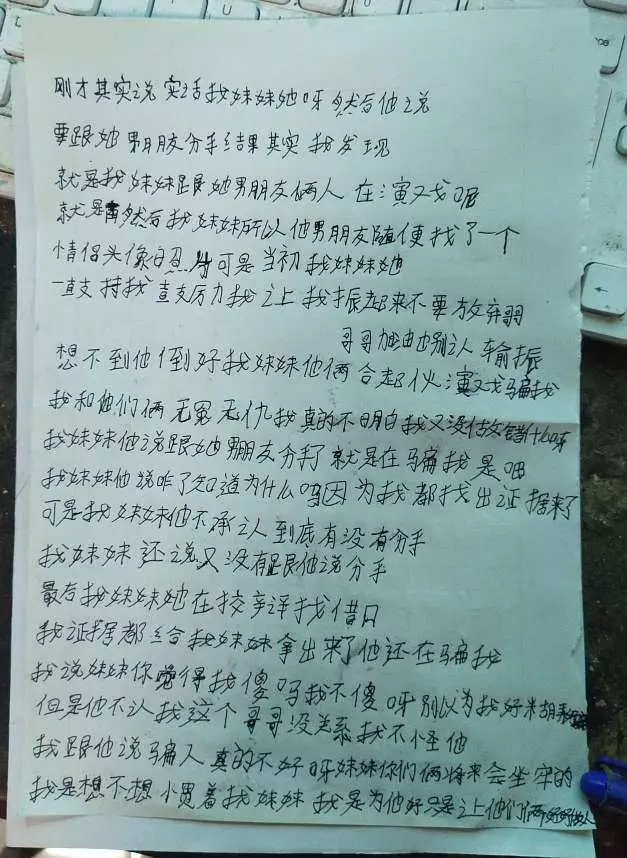 刚才其实说实话我妹妹她呀然后他说
要跟她男朋友分手结果其实我发现
就是我妹妹跟她男朋友俩人在演戏呢
就是然后我妹妹所以他男朋友随便找了一个
情侣头像 可是当初我妹妹她
一直支持我 直支历力我之上我振起来不要放弃弱
哥哥加油也别认输振
想不到他倒好我妹妹他俩合起伙演戏骗我
我和他们俩无冤无仇我真的不明白我又没做错什么呀
我妹妹他说跟她男朋友分手了就是在骗我是吧
我妹妹他说咋了知道为什么吗因为我都找出证据来了
可是我妹妹他不承认到底有没有分手
我妹妹还说又没有跟他说分手
最后我妹妹她在狡辛详找借口
我证据都给我妹妹拿出来了他还在骗我
我说妹妹你觉得我傻吗我不傻呀别以为我好米胡
但是他不认我这个哥哥没关系我不怪他
我跟他说骗人真的不好呀妹妹你们俩将来会坐牢的
我是想不想惯着我妹妹我是为他好只是让他们俩好好做人